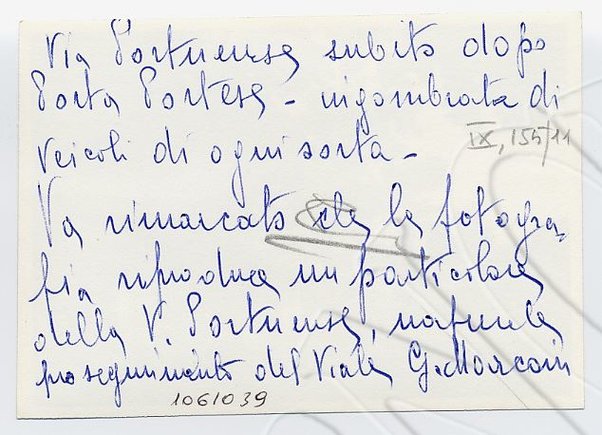 Via Portuense subito dopo
Porta Portese - ingombrata di
veicoli di ogni sorta -
IX, 155/11
Va rimarcato che la fotogra-
fia riproduce un particolare
della V. Portuense, naturale
proseguimento del Viale G. Marconi
1061039